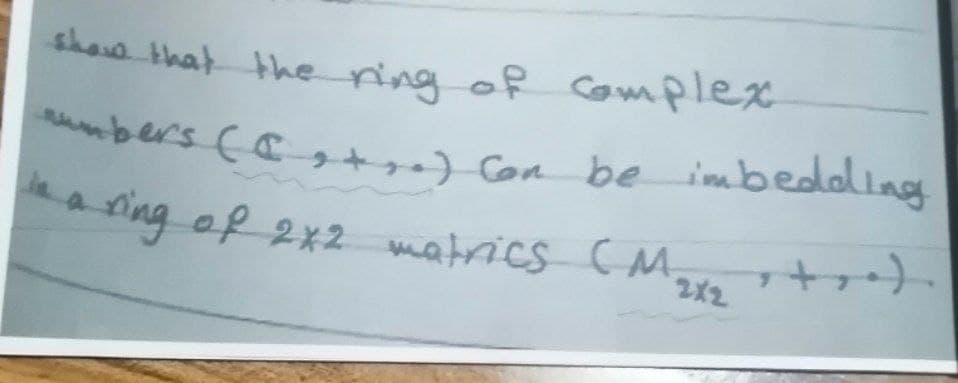 show that the ring of complex
numbers (ℂ, +, .) Can be imbedding
in a ring of 2x2 matrics (M₂ₓ₂, +, .).